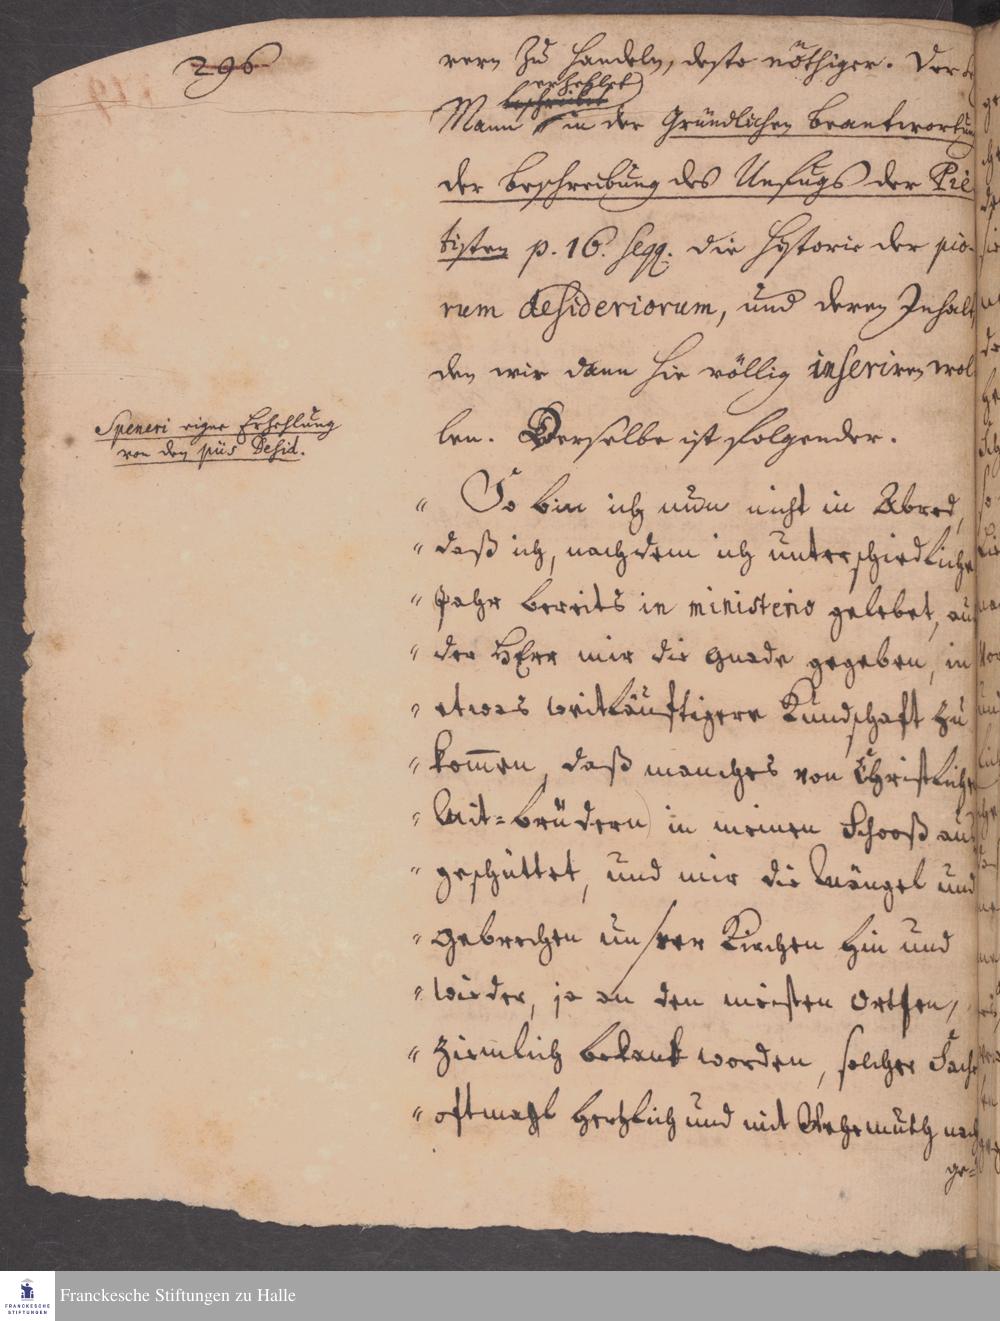 296
rern zu handeln, desto nöthiger. Der
Mann erzehlet in der Gründlichen Beantwortung
der Beschreibung des Unfugs der Pie-
tisten p. 16. seqq. die Historie der pio-
rum desideriorum, und deren Inhalt
den wir dann hie völlig inseriren wol
len. Derselbe ist folgender.
Speneri eigne Erzehlung
von den piis Desid.
" So bin ich nun nicht in Abred,
" daß ich, nachdem ich unterschiedliche
" Jahr bereits in ministerio gelebet, au
" der HErr mir die Gnade gegeben, in
" etwas weitläufftigere Kundschafft zu
" kommen, daß manches von Christliche
" Mit-Brüdern in meinen Schooß aus
" geschüttet, und mir die Mängel und
" Gebrechen unsrer Kirchen hin und
" wieder, ja an den meisten Orthen,
" ziemlich bekant worden, solcher Sache
" offtmahl hertzlich und mit Wehemuth nach
ge-
Franckesche Stiftungen zu Halle
FRANCKESCHE
STIFTUNGEN